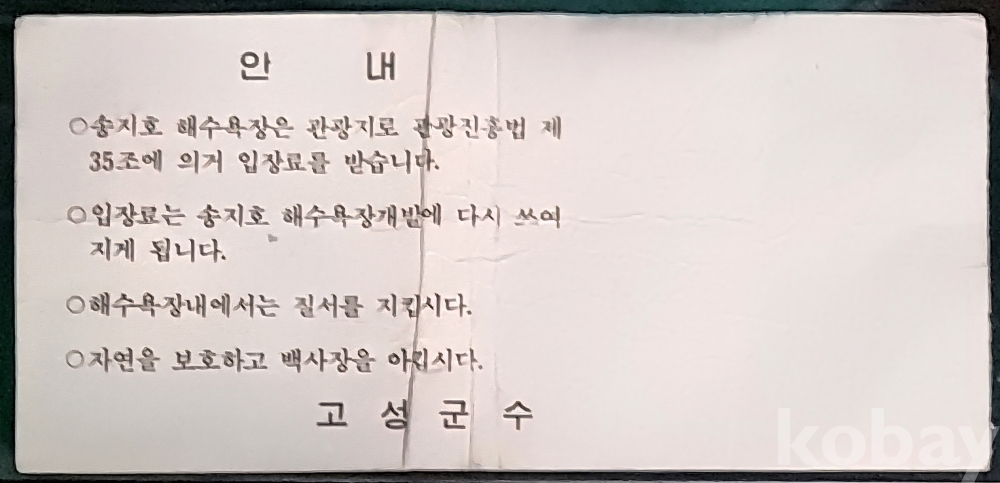 안 내
○송지호 해수욕장은 관광지로 관광진흥법 제
35조에 의거 입장료를 받습니다.
○입장료는 송지호 해수욕장개발에 다시 쓰여
지게 됩니다.
○해수욕장내에서는 질서를 지킵시다.
○자연을 보호하고 백사장을 아낍시다.
고 성 군 수
kobay